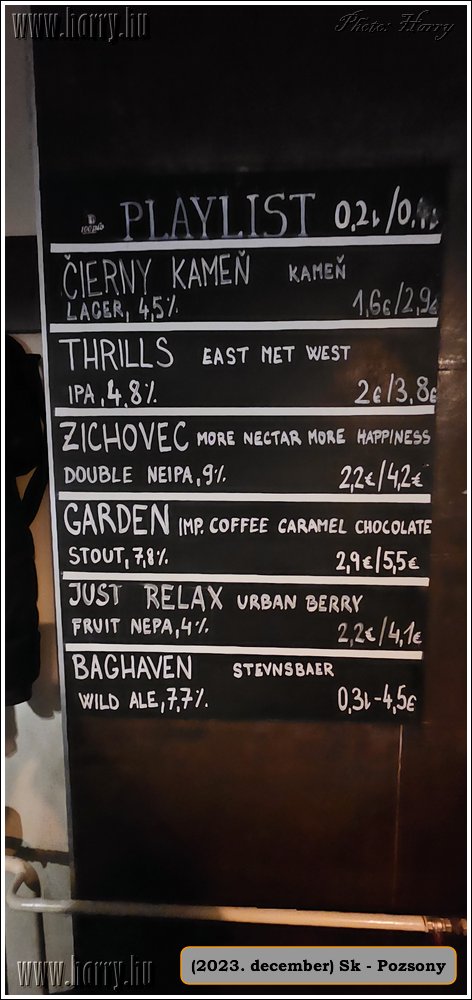 www.harry.hu
Photo: Harry
100pio PLAYLIST 0,2l/0,4l
ČIERNY KAMEŇ KAMEŇ
LAGER, 4,5% 1,6€/2,9€
THRILLS EAST MET WEST
IPA, 4,8% 2€/3,8€
ZICHOVEC MORE NECTAR MORE HAPPINESS
DOUBLE NEIPA, 9% 2,2€/4,2€
GARDEN IMP. COFFEE CARAMEL CHOCOLATE
STOUT, 7,8% 2,9€/5,5€
JUST RELAX URBAN BERRY
FRUIT NEPA, 4% 2,2€/4,1€
BAGHAVEN STEVNSBAER
WILD ALE, 7,7% 0,3l-4,5€
www.harry.hu
(2023. december) Sk - Pozsony